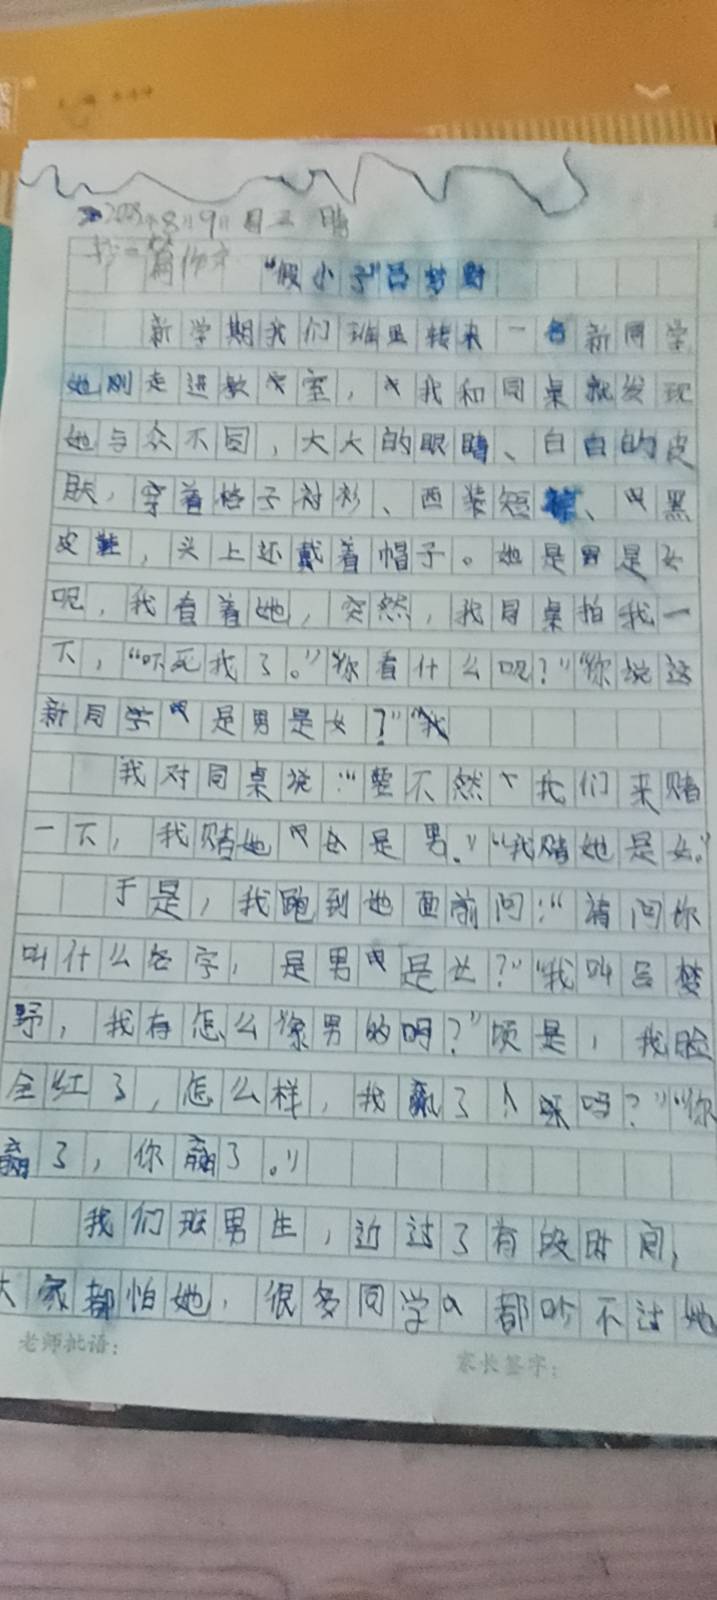 8月9日 晴
"假小子"吕梦野
新学期我们班里转来一名新同学
她刚走进教室，我和同桌就发现
她与众不同，大大的眼睛、白白的皮
肤，穿着格子衬衫、西装短裤、黑
皮鞋，头上还戴着帽子。她是男是女
呢，我看着她，突然，我同桌拍我一
下，"吓死我了。""你看什么呢？""你说这
新同学是男是女？""我
我对同桌说："要不然我们来赌
一下，我赌她是男。""我赌她是女。"
于是，我跑到她面前问："请问你
叫什么名字，是男是女？""我叫吕梦
野，我有怎么像男的吗？"顷是，我脸
全红了，怎么样，我赢了吗？""你
赢了，你赢了。"
我们班男生，近过了有段时间，
大家都怕她，很多同学都吵不过她
老师批语：
家长签字：